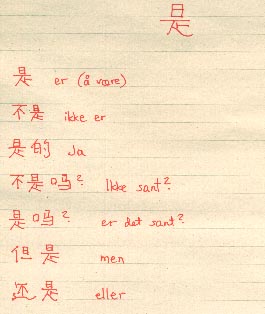 是
是 er (å være)
不是 ikke er
是的 Ja
不是吗? Ikke sant?
是吗? er det sant?
但是 men
还是 eller